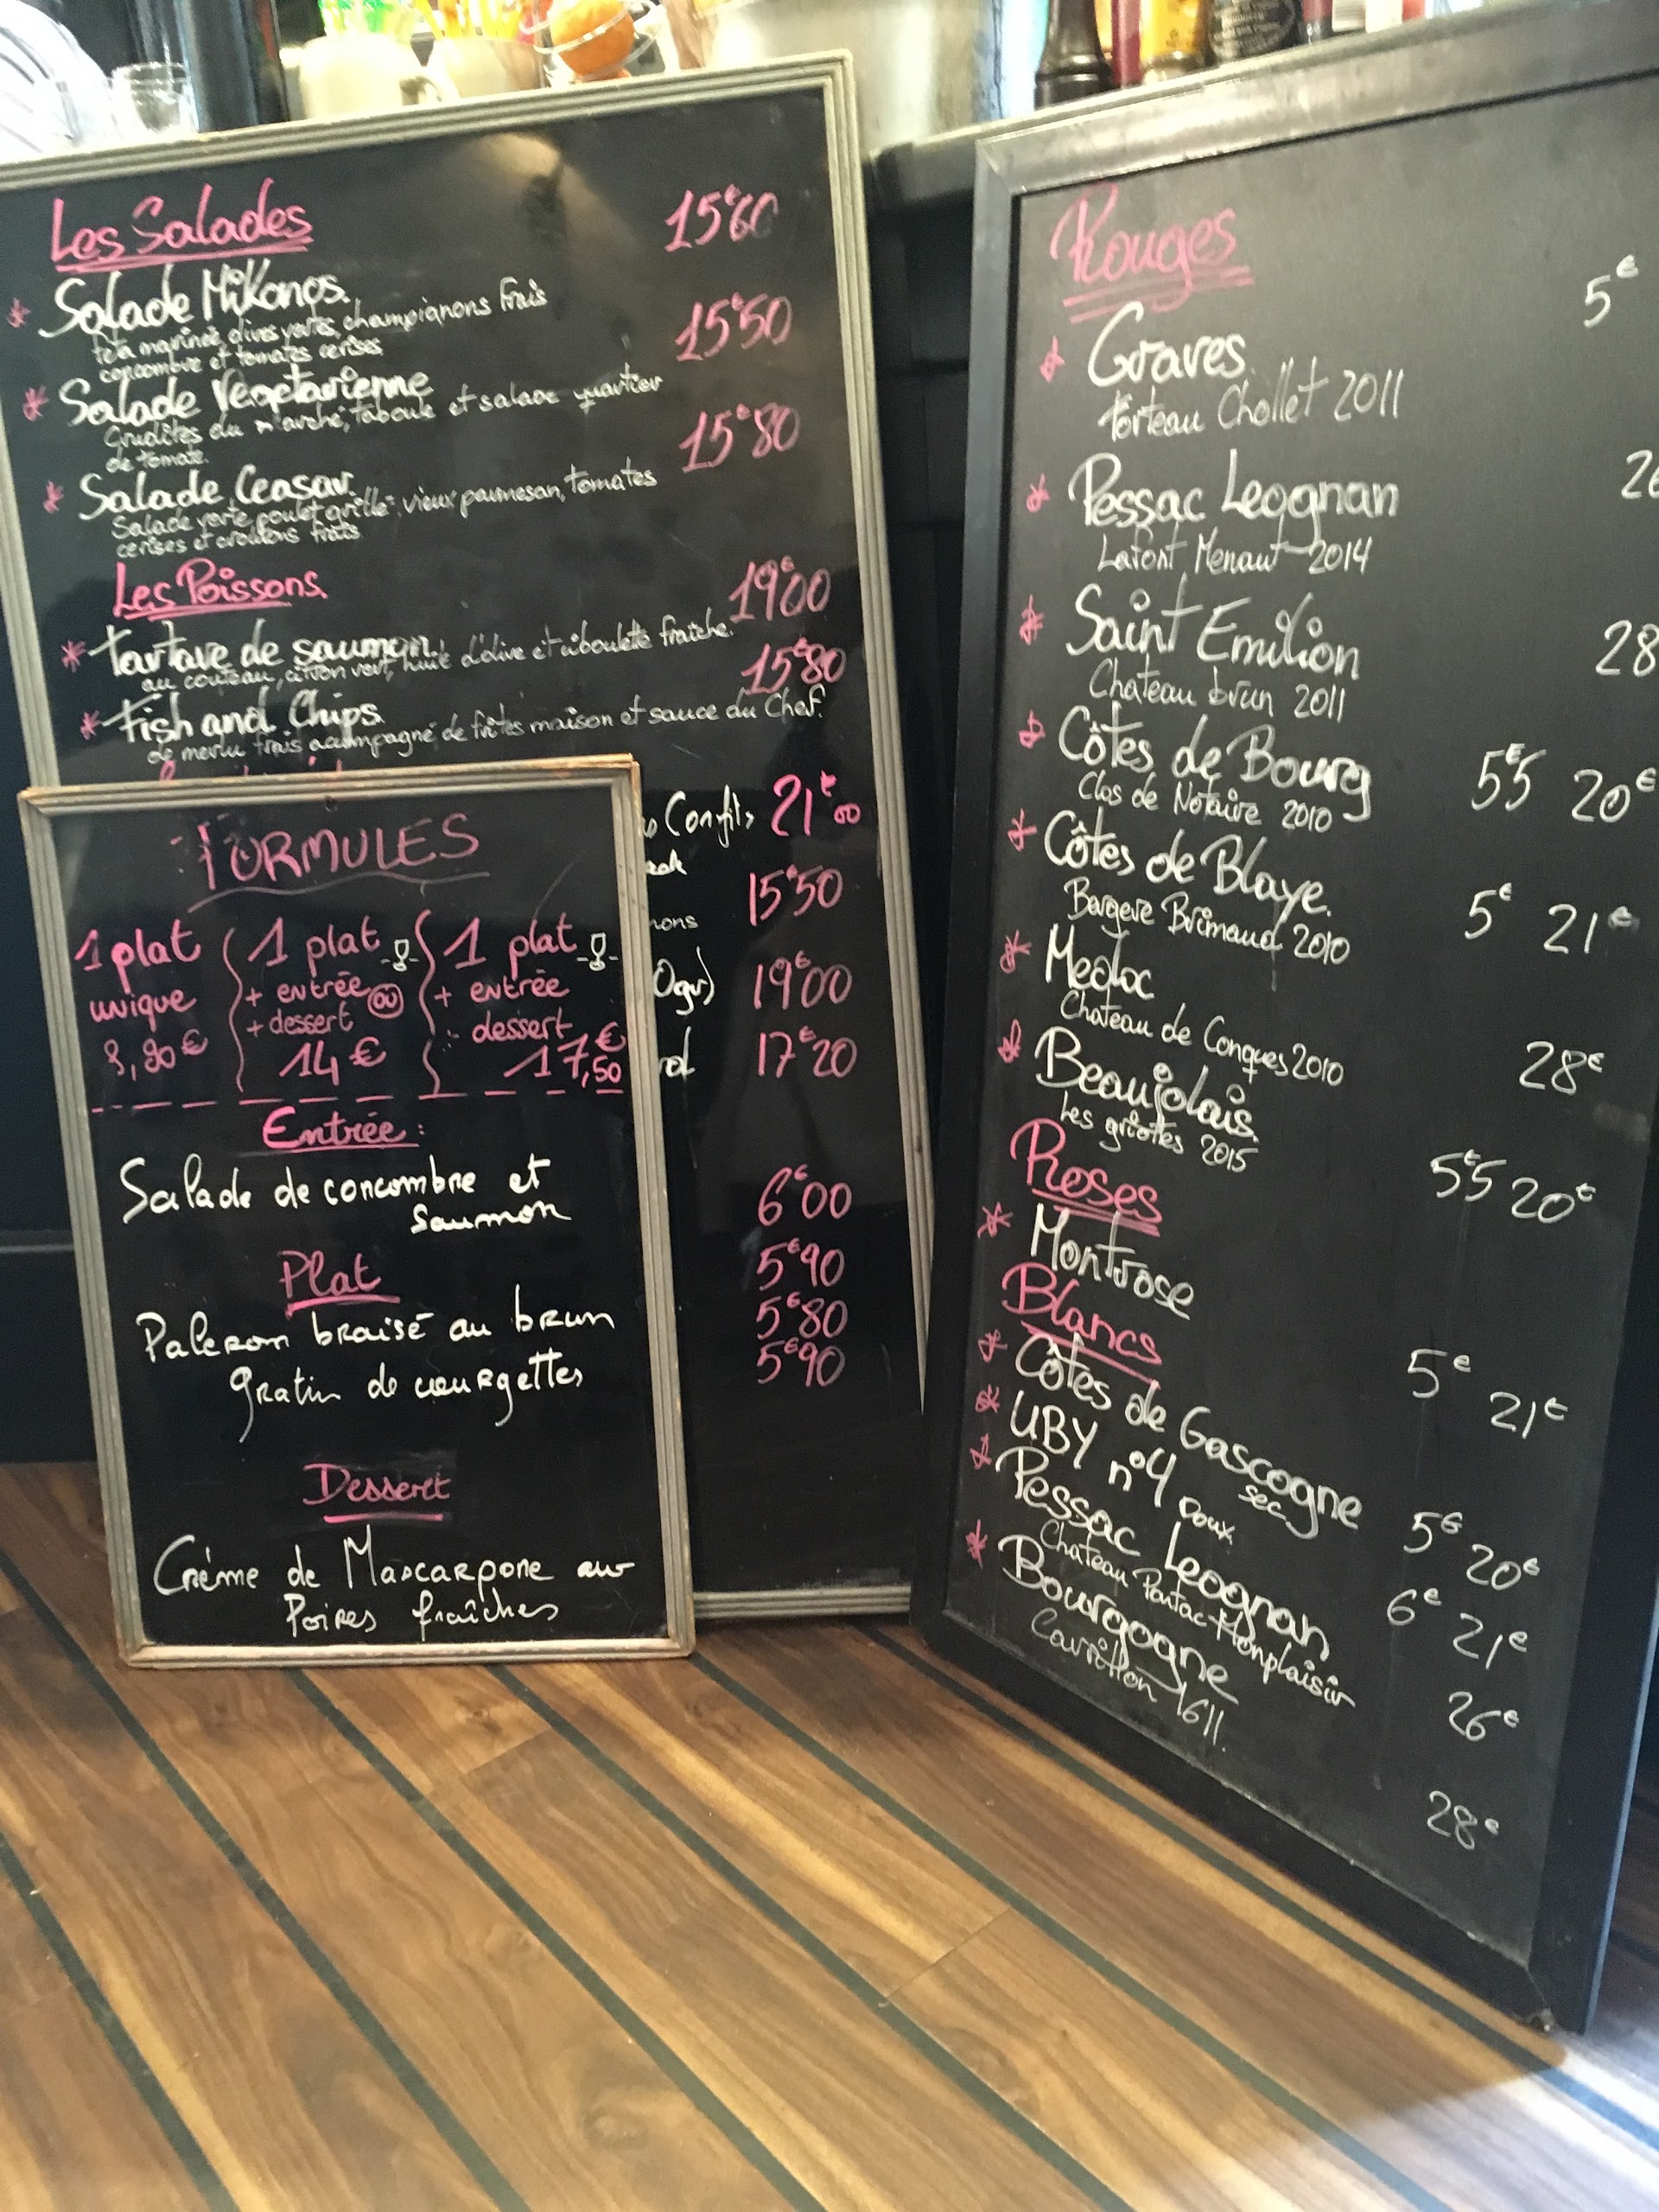 Les Salades
15€60
* Salade Mikonos.
feta marinée, olives vertes, champignons frais
concombre et tomates cerises
15€50
* Salade Vegetarienne
Crudités du marché, taboulé et salade quartier
de tomate.
15€80
* Salade Ceasar.
Salade verte, poulet grillé, vieux parmesan, tomates
cerises et croutons frais
Les Poissons.
19€00
* Tartare de saumon.
au couteau, citron vert, huile d'olive et ciboulette fraîche.
15€80
* Fish and Chips
de merlu frais accompagné de frites maison et sauce du Chef.
Confit, 21€00
15€50
19€00
17€20
6€00
5€90
5€80
5€90
FORMULES
1 plat
unique
9,90€
1 plat
+ entrée ou
+ dessert
14€
1 plat
+ entrée
- dessert
17,50€
Entrée:
Salade de concombre et
saumon
Plat
Paleron braisé au brun
gratin de courgettes
Dessert
Crème de Mascarpone aux
Poires fraîches
Rouges
5€
* Graves.
Chollet 2011
* Pessac Leognan
Lafont Menaut 2014
* Saint Emilion 28
Chateau brun 2011
* Côtes de Bourg 5€5 20€
Clos de Notaire 2010
* Côtes de Blaye. 5€ 21€
2010
* Medoc
Chateau de Conques 2010 28€
* Beaujolais.
Les griottes 2015 5€5 20€
Roses
* Montrose
5€ 21€
Blancs
* Côtes de Gascogne 5€ 20€
sec
* UBY n°4 Doux 6€ 21€
* Pessac Leognan 26€
Chateau Pontac-Monplaisir
* Bourgogne 28€
1611.